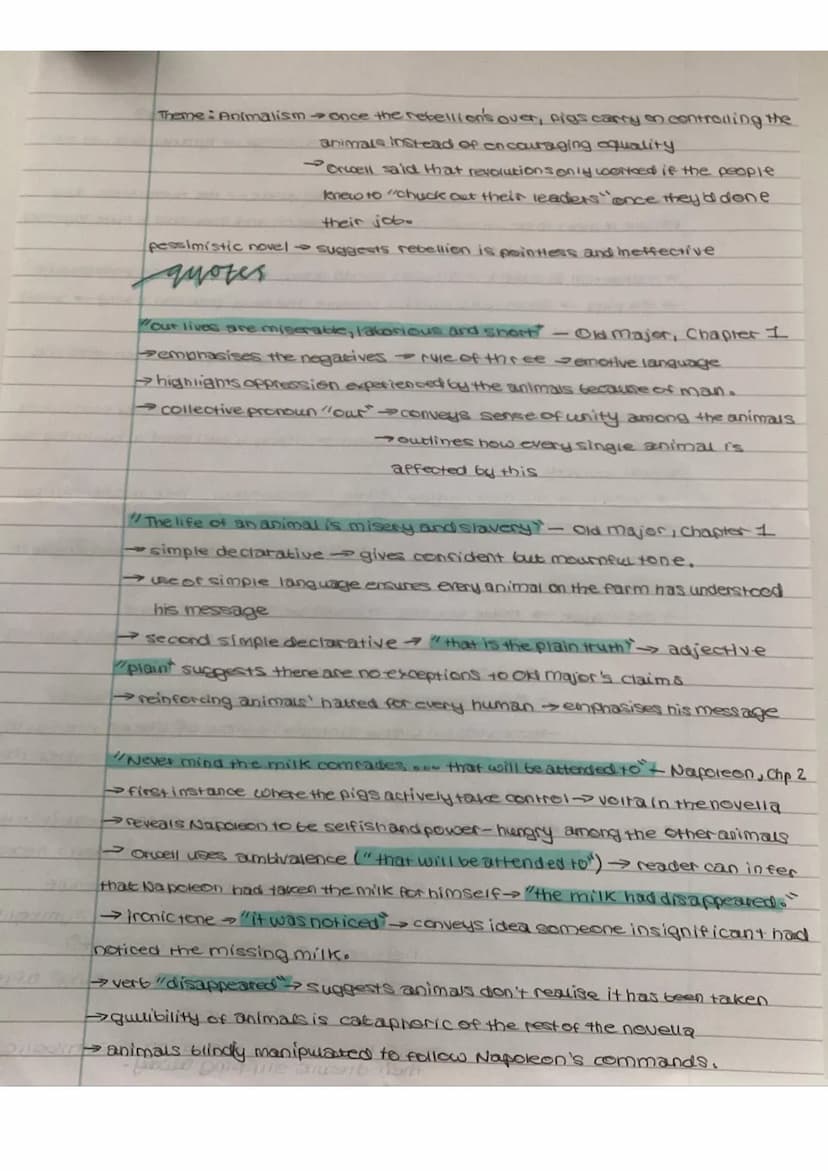 Theme: Animalism → once the rebellion's over, pigs carry on controlling the
animals instead of encouraging equality
→ Orwell said that revolutions only worked if the people
knew to "chuck out their leaders" once they'd done
their job.
pessimistic novel → suggests rebellion is pointless and ineffective
quotes
"Our lives are miserable, laborious and short" - Old Major, Chapter 1
→ emphasises the negatives → rule of three → emotive language
→ highlights oppression experienced by the animals because of man.
→ collective pronoun "our" → conveys sense of unity among the animals
→ outlines how every single animal is
affected by this
"The life of an animal is misery and slavery" - Old Major, Chapter 1
→ simple declarative → gives confident but mournful tone.
→ use of simple language ensures every animal on the farm has understood
his message
→ second simple declarative → "that is the plain truth" → adjective
"plain" suggests there are no exceptions to Old Major's claims
→ reinforcing animals' hatred for every human → emphasises his message
"Never mind the milk comrades .... that will be attended to" - Napoleon, Chp 2
→ first instance where the pigs actively take control → volta in the novella
→ reveals Napoleon to be selfish and power-hungry among the other animals
→ Orwell uses ambivalence ("that will be attended to") → reader can infer
that Napoleon had taken the milk for himself → "the milk had disappeared."
→ ironic tone → "it was noticed" → conveys idea someone insignificant had
noticed the missing milk.
→ verb "disappeared" → suggests animals don't realise it has been taken
→ gullibility of animals is cataphoric of the rest of the novella
→ animals blindly manipulated to follow Napoleon's commands.